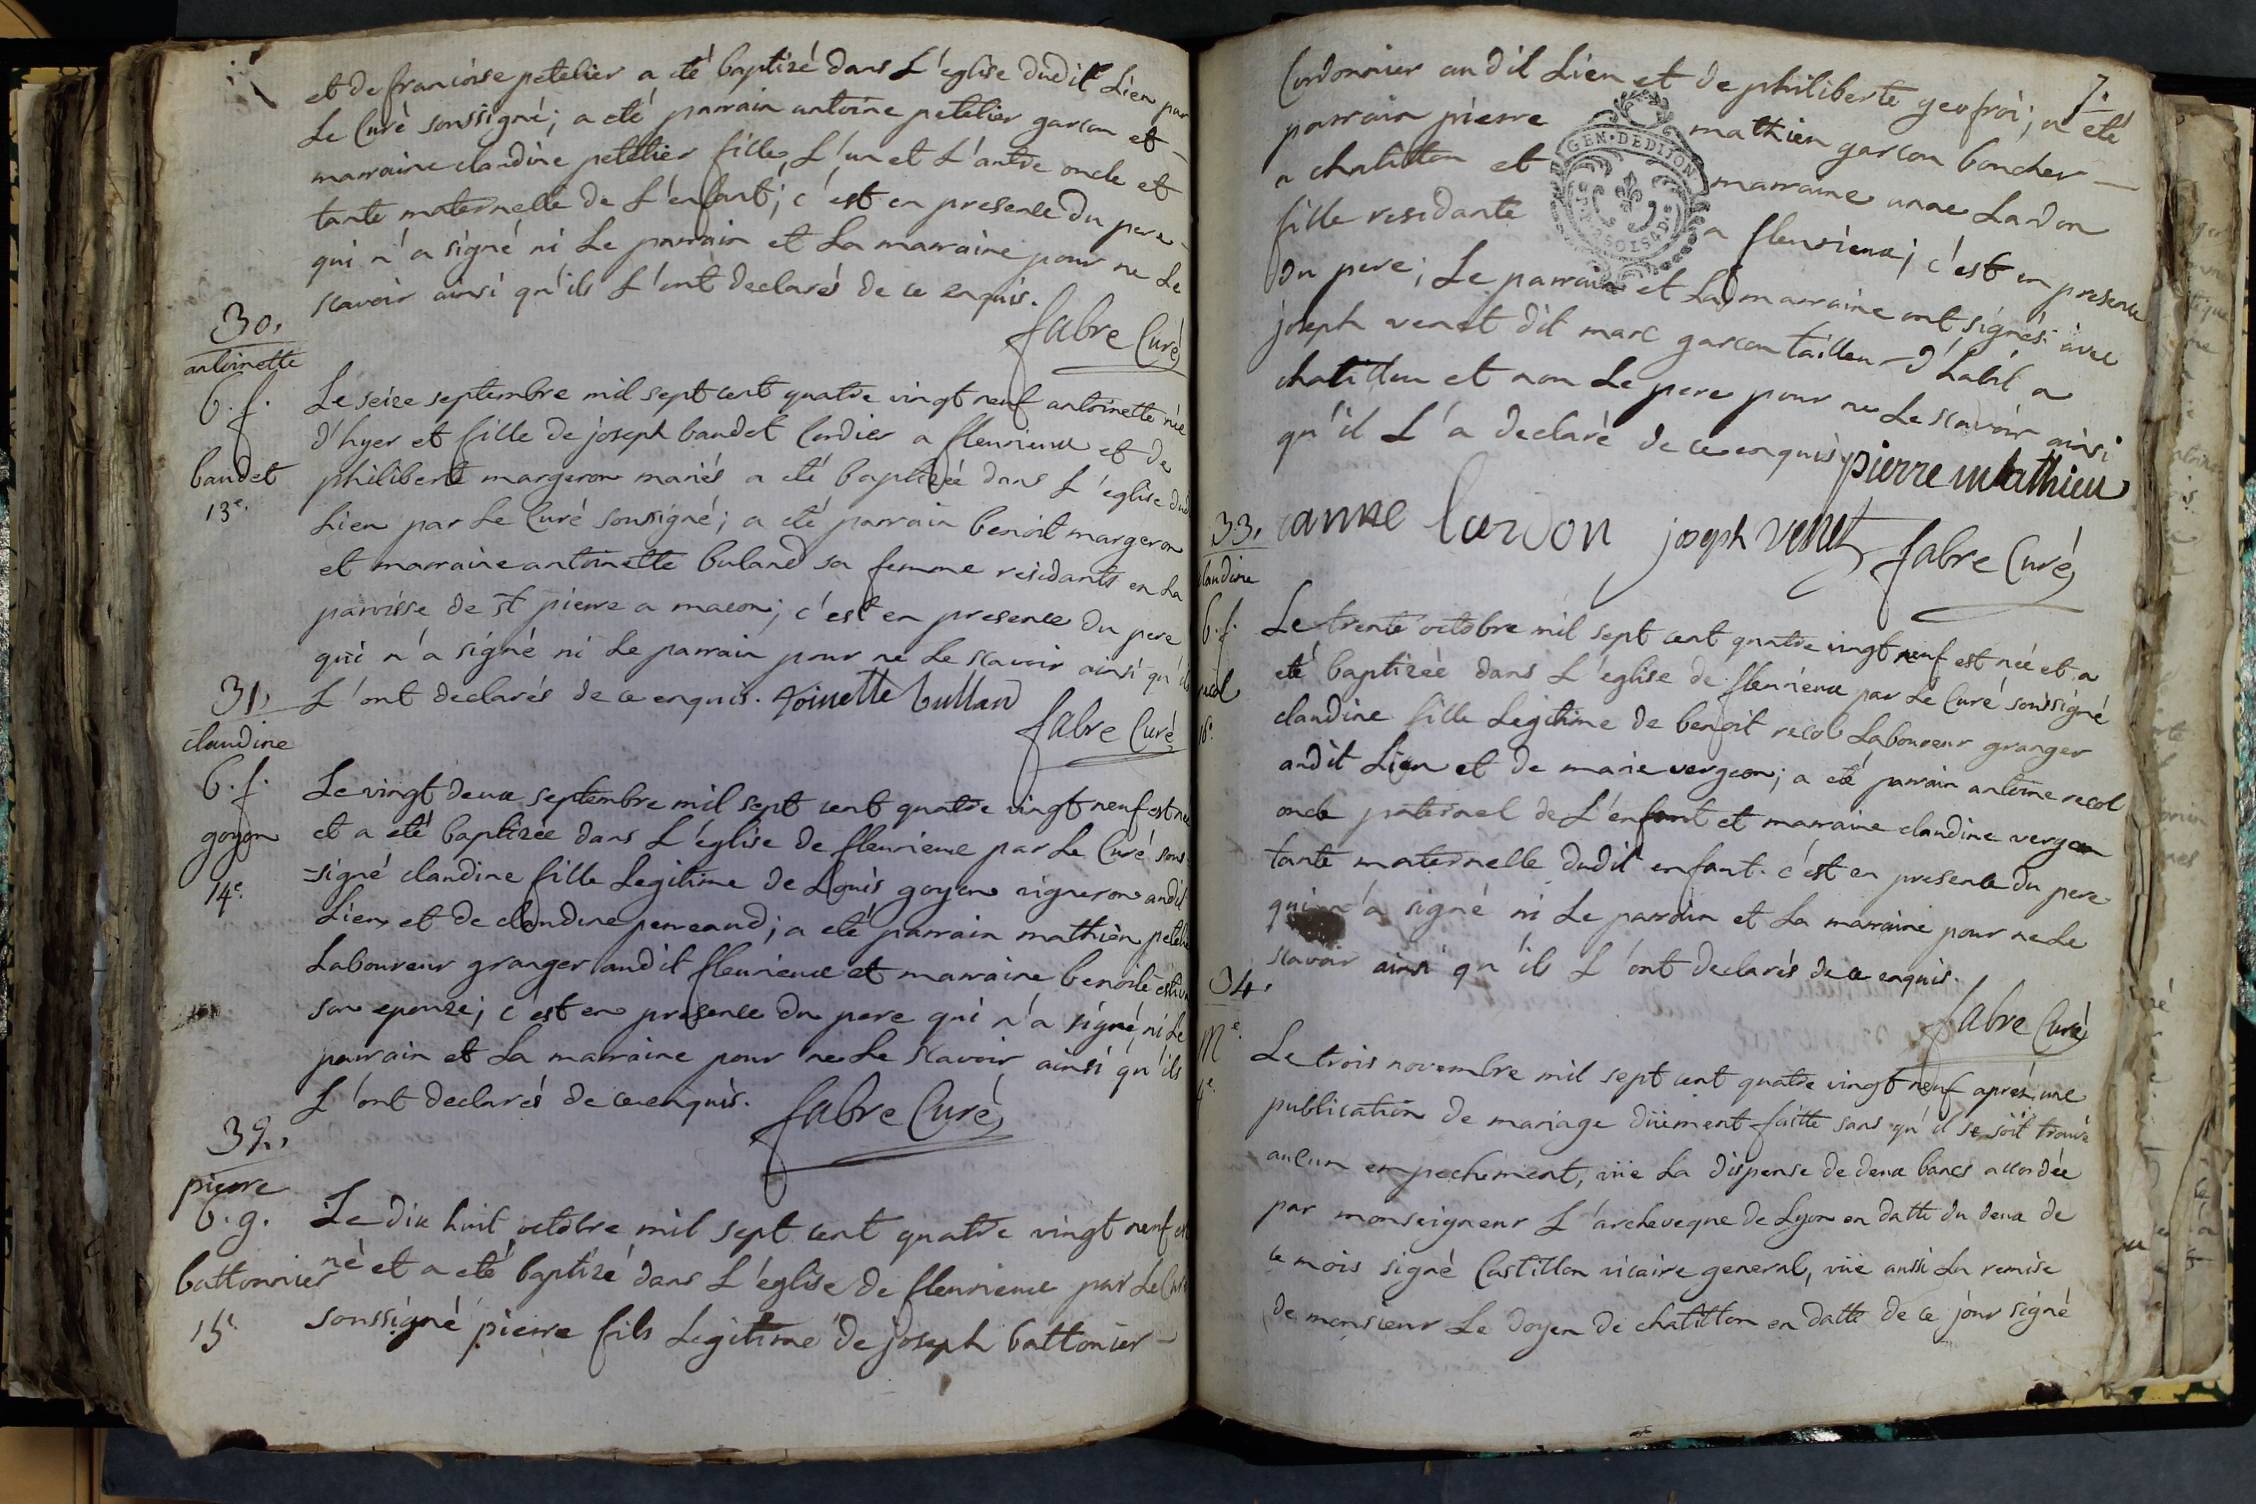 et de francoise petelier a eté baptizé dans L'eglise dudit Lieu par
Le Curé soussigné; a eté parrain antoine petelier garcon et
marraine claudine petelier fille, L'un et L'autre oncle et
tante maternelle de L'enfant; c'est en presence du pere
qui n'a signé ni Le parrain et La marraine pour ne Le
scavoir ainsi qu'ils L'ont declarés de ce enquis.
fabre Curé
30.
antoinette
b. f.
baudet
13e.
Le seize septembre mil sept cent quatre vingt neuf antoinette née
d'hyer et fille de joseph baudet Cordier a fleurieux et de
philiberte margeron mariés a eté baptizée dans L'eglise dud
Lieu par Le Curé soussigné; a eté parrain benoit margeron
et marraine antoinette buland sa femme residants en La
parroisse de st pierre a macon; c'est en presence du pere
qui n'a signé ni Le parrain pour ne Le scavoir ainsi qu'ils
L'ont declarés de ce enquis. toinette bulland
fabre Curé
31.
claudine
b. f.
goyon
14e.
Le vingt deux septembre mil sept cent quatre vingt neuf est née
et a eté baptizée dans L'église de fleurieux par Le Curé sous
=signé claudine fille Legitime de Louis goyon vigneron audit
Lieu et de claudine perreaud; a eté parrain mathieu
Laboureur granger audit fleurieux et marraine benoite
son epouze; c'est en presence du pere qui n'a signé, ni Le
parrain et La marraine pour ne Le scavoir ainsi qu'ils
L'ont declarés de ce enquis. fabre Curé
32.
pierre
b. g.
battonnier
15e
Le dix huit octobre mil sept cent quatre vingt neuf est
né et a eté baptizé dans L'église de fleurieux par Le Curé
soussigné pierre fils Legitime de joseph battonier
7.
Cordonnier audit Lieu et de philiberte geofroi; a eté
parrain pierre mathieu garcon boucher
a chatillon et marraine anne Lardon
fille residante a fleurieux; c'est en presence
du pere; Le parrain et La marraine ont signés avec
joseph venet dit marc garcon tailleur d'habit a
chatillon et non Le pere pour ne Le scavoir ainsi
qu'il L'a declaré de ce enquis pierre mathieu
anne lardon joseph venet fabre Curé
GEN. DE DIJON
33.
claudine
b. f.
recol
16e.
Le trente octobre mil sept cent quatre vingt neuf est née et a
eté baptizée dans L'église de fleurieux par Le Curé soussigné
claudine fille Legitime de benoit recol Laboureur granger
audit Lieu et de marie vergeon; a eté parrain antoine recol
oncle paternel de L'enfant et marraine claudine vergeon
tante maternelle dudit enfant. c'est en presence du pere
qui n'a signé ni Le parrain et La marraine pour ne Le
scavoir ainsi qu'ils L'ont declarés de ce enquis.
fabre Curé
34.
Me.
4e.
Le trois novembre mil sept cent quatre vingt neuf après une
publication de mariage düement faitte sans qu'il se soit trouvé
aucun empechement, vüe La dispense de deux bancs accordée
par monseigneur L'archeveque de Lyon en datte du deux de
ce mois signé Castillon vicaire general, vüe aussi La remise
de monsieur Le doyen de chatillon en datte de ce jour signé